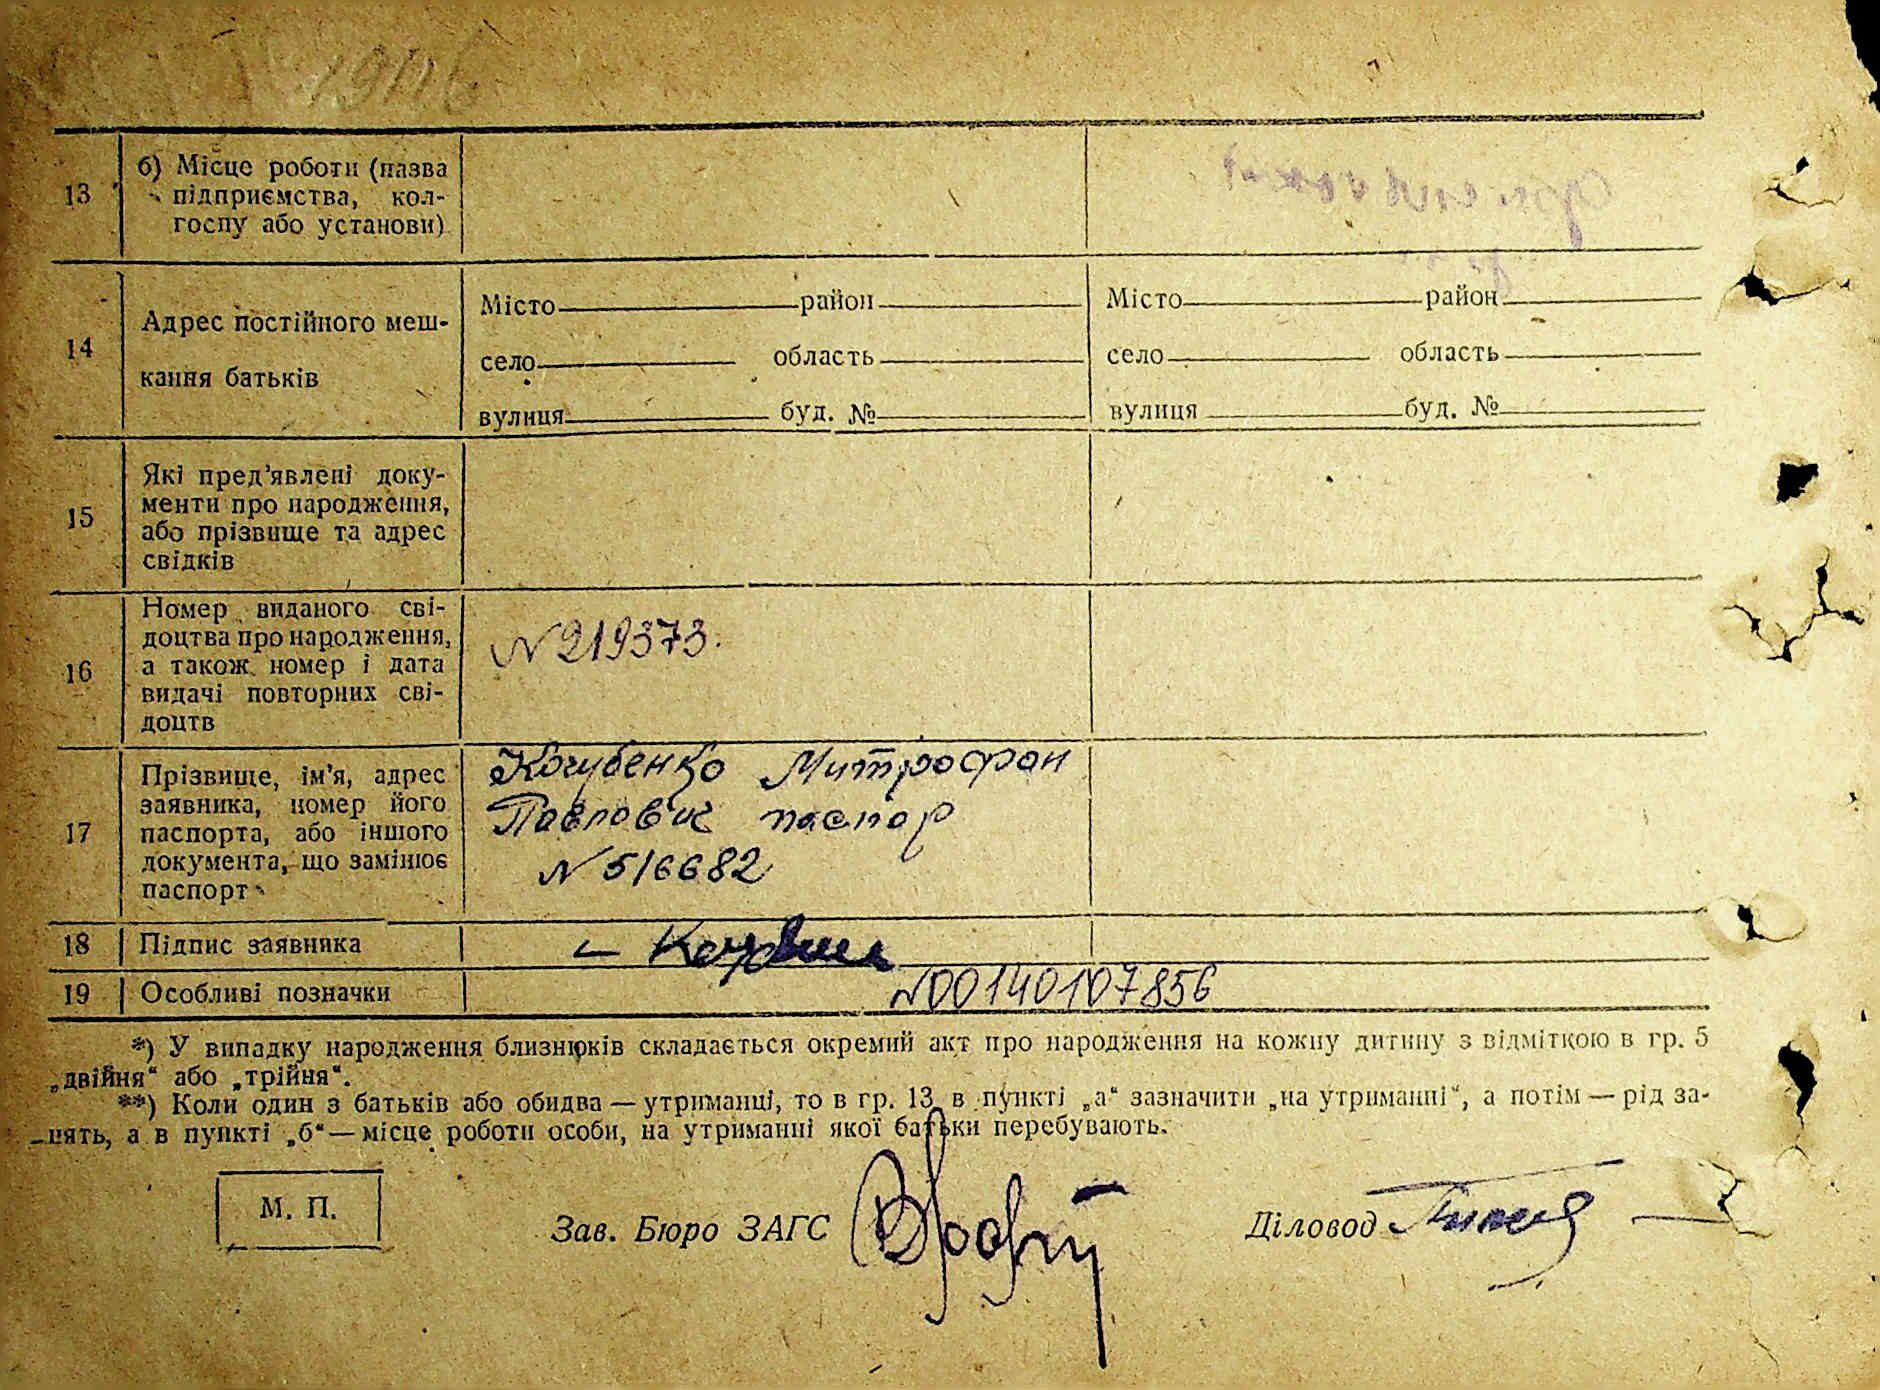 13
б) Місце роботи (назва
підприємства, кол-
госпу або установи)
14
Адрес постійного меш-
кання батьків
Місто район
село область
вулиця буд. №
Місто район
село область
вулиця буд. №
15
Які пред'явлені доку-
менти про народження,
або прізвище та адрес
свідків
16
Номер виданого сві-
доцтва про народження,
а також номер і дата
видачі повторних сві-
доцтв
N 219373.
17
Прізвище, ім'я, адрес
заявника, номер його
паспорта, або іншого
документа, що замінює
паспорт
Кочубенко Митрофан
Павлович паспор
N 516682
18 Підпис заявника
19 Особливі позначки
N00140107856
*) У випадку народження близнюків складається окремий акт про народження на кожну дитину з відміткою в гр. 5
„двійня“ або „трійня“.
**) Коли один з батьків або обидва — утриманці, то в гр. 13 в пункті „а“ зазначити „на утриманні“, а потім — рід за-
нять, а в пункті „б“ — місце роботи особи, на утриманні якої батьки перебувають.
М. П.
Зав. Бюро ЗАГС
Діловод